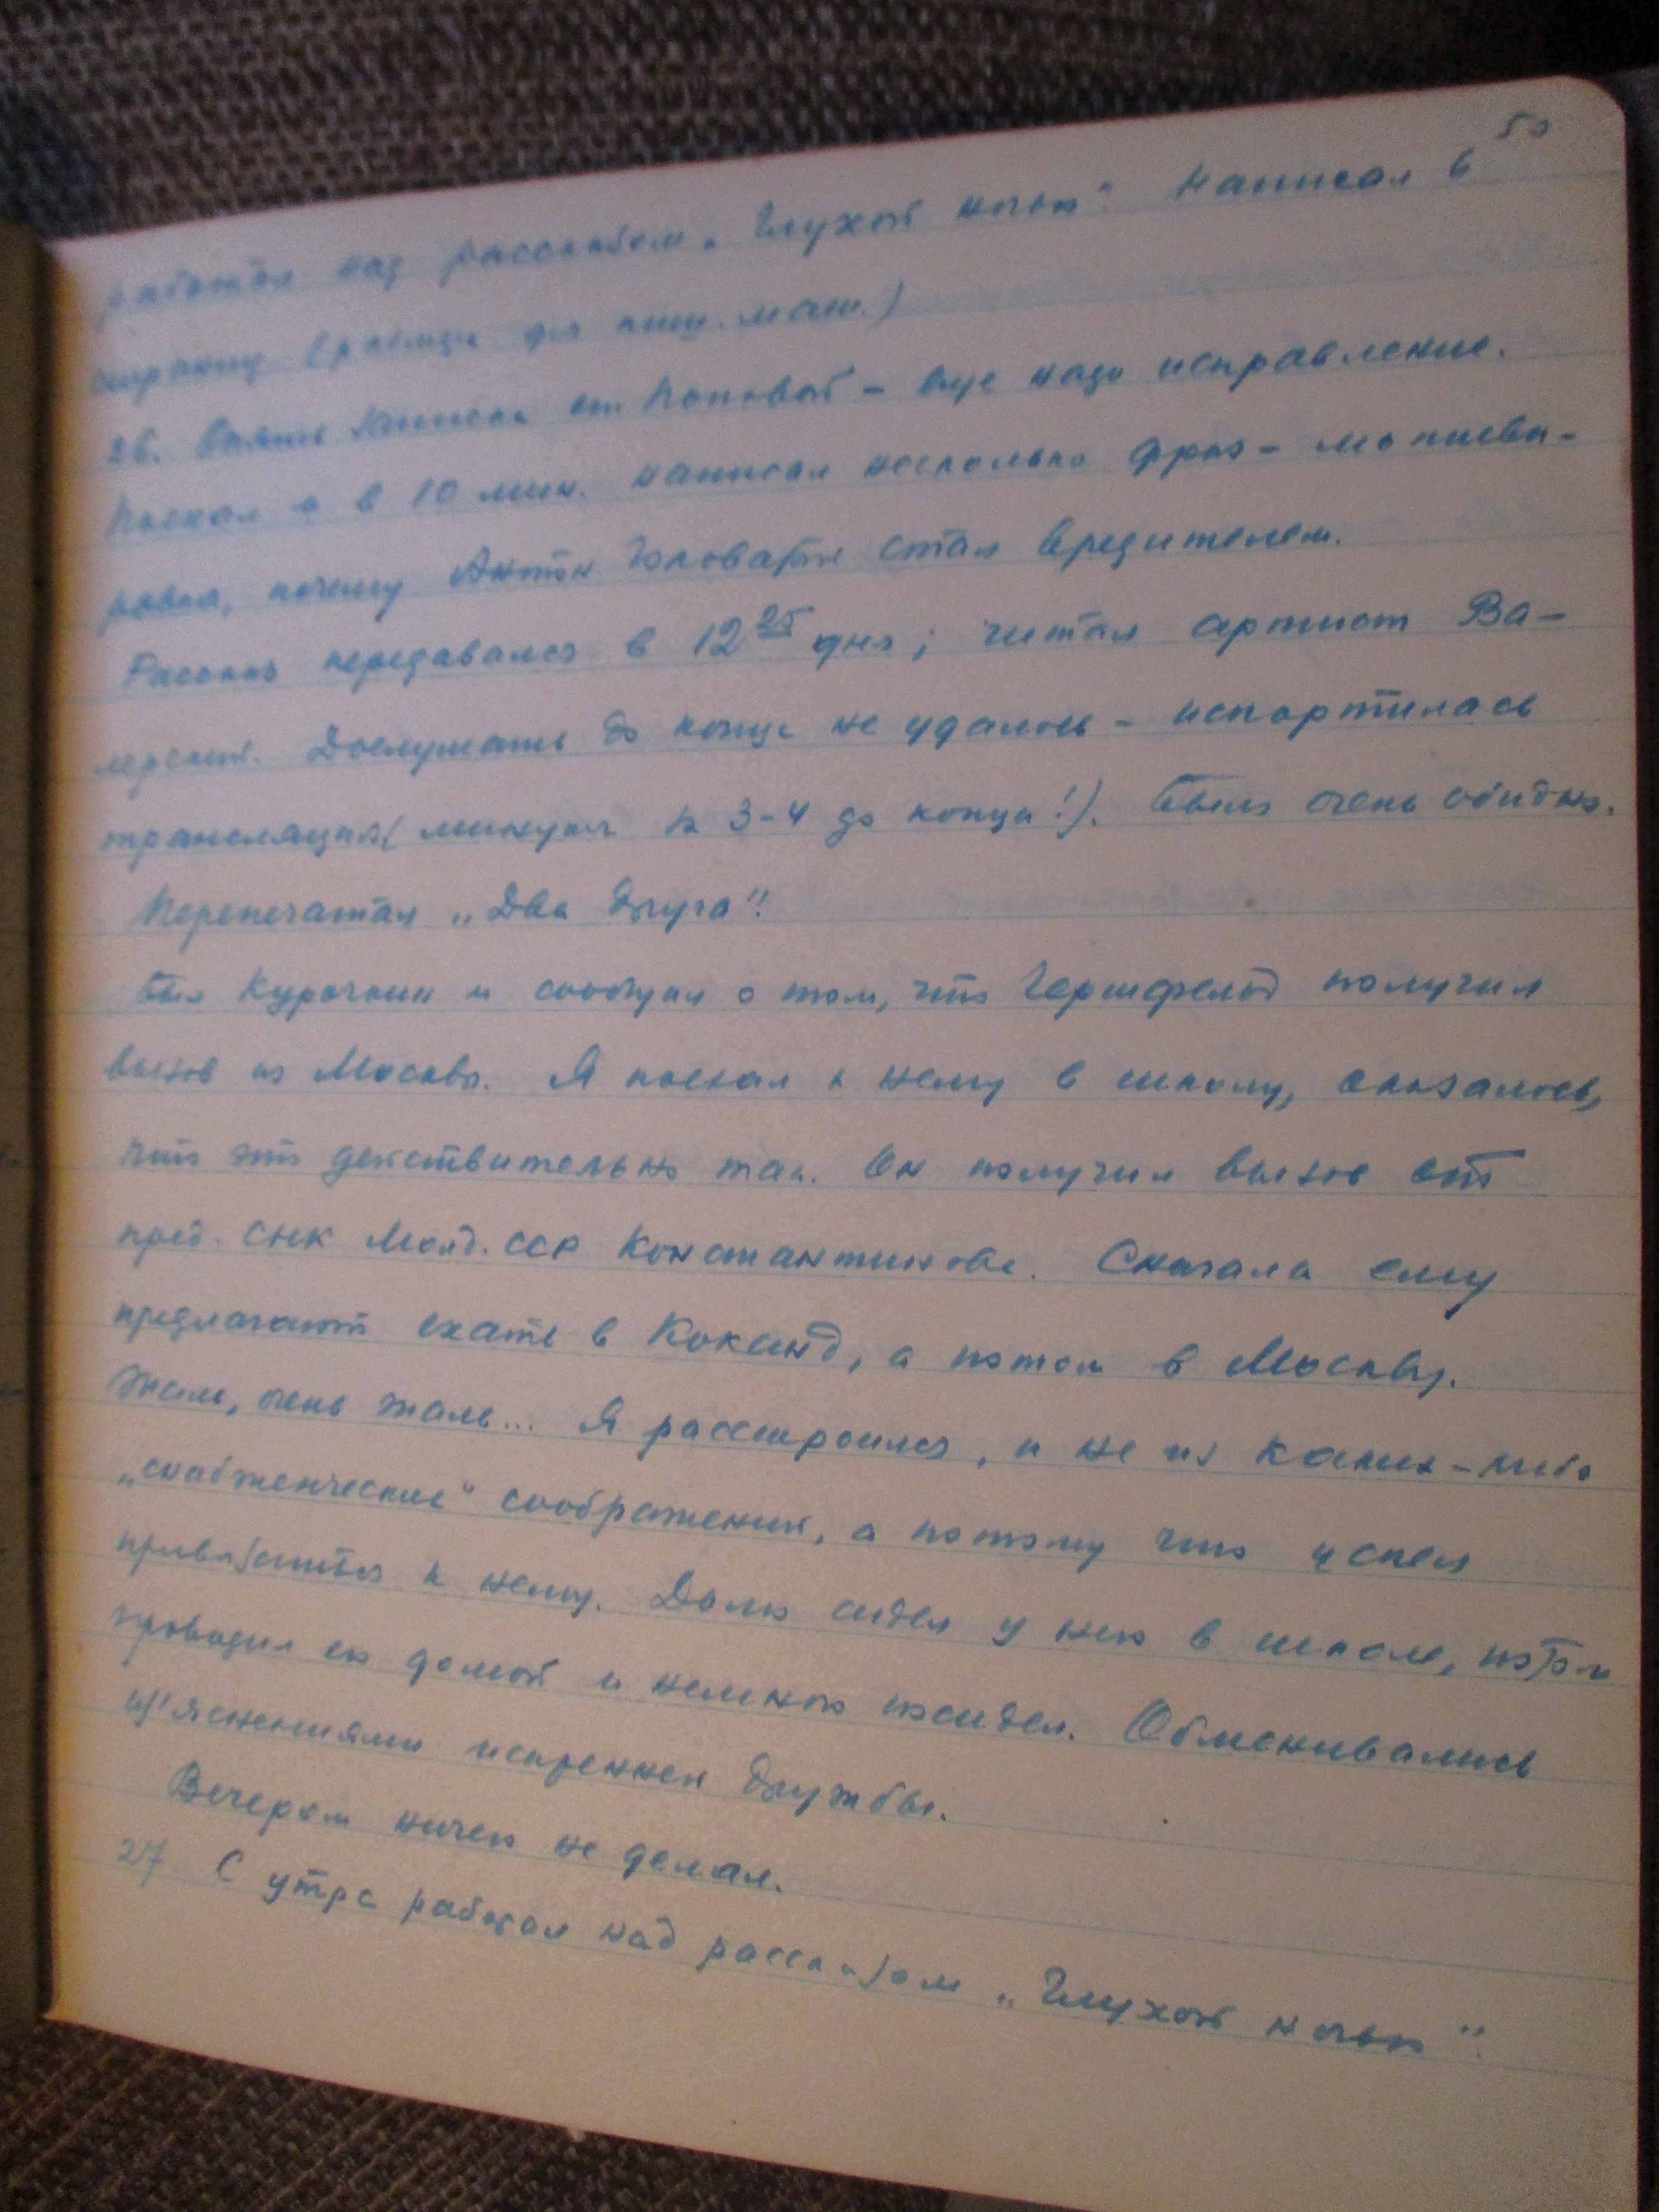 50
работал над рассказом „Глухой ночью". Написал 6
страниц (размера для пиш. маш.)
26. Опять записка от Поповой – еще надо исправление.
Поехал и в 10 мин. написал несколько фраз – мотиви-
ровка, почему Антон стал вредителем.
Рассказ передавался в 12 25 дня; читал артист Ва-
лерский. Дослушать до конца не удалось – испортилась
трансляция (минуты за 3-4 до конца!). Было очень обидно.
Перепечатал „Два друга".
Был Курочкин и сообщил о том, что Гершфельд получил
вызов из Москвы. Я поехал к нему в школу, оказалось,
что это действительно так. Он получил вызов от
пред. СНК Молд. ССР Константинова. Сначала ему
предлагают ехать в Коканд, а потом в Москву.
Жаль, очень жаль... Я расстроился, и не из каких-либо
„снабженческих" соображений, а потому что успел
привязаться к нему. Долго сидел у него в школе, потом
проводил его домой и немного посидел. Обменивались
из'яснениями искренней дружбы.
Вечером ничего не делал.
27 С утра работал над рассказом „Глухой ночью".